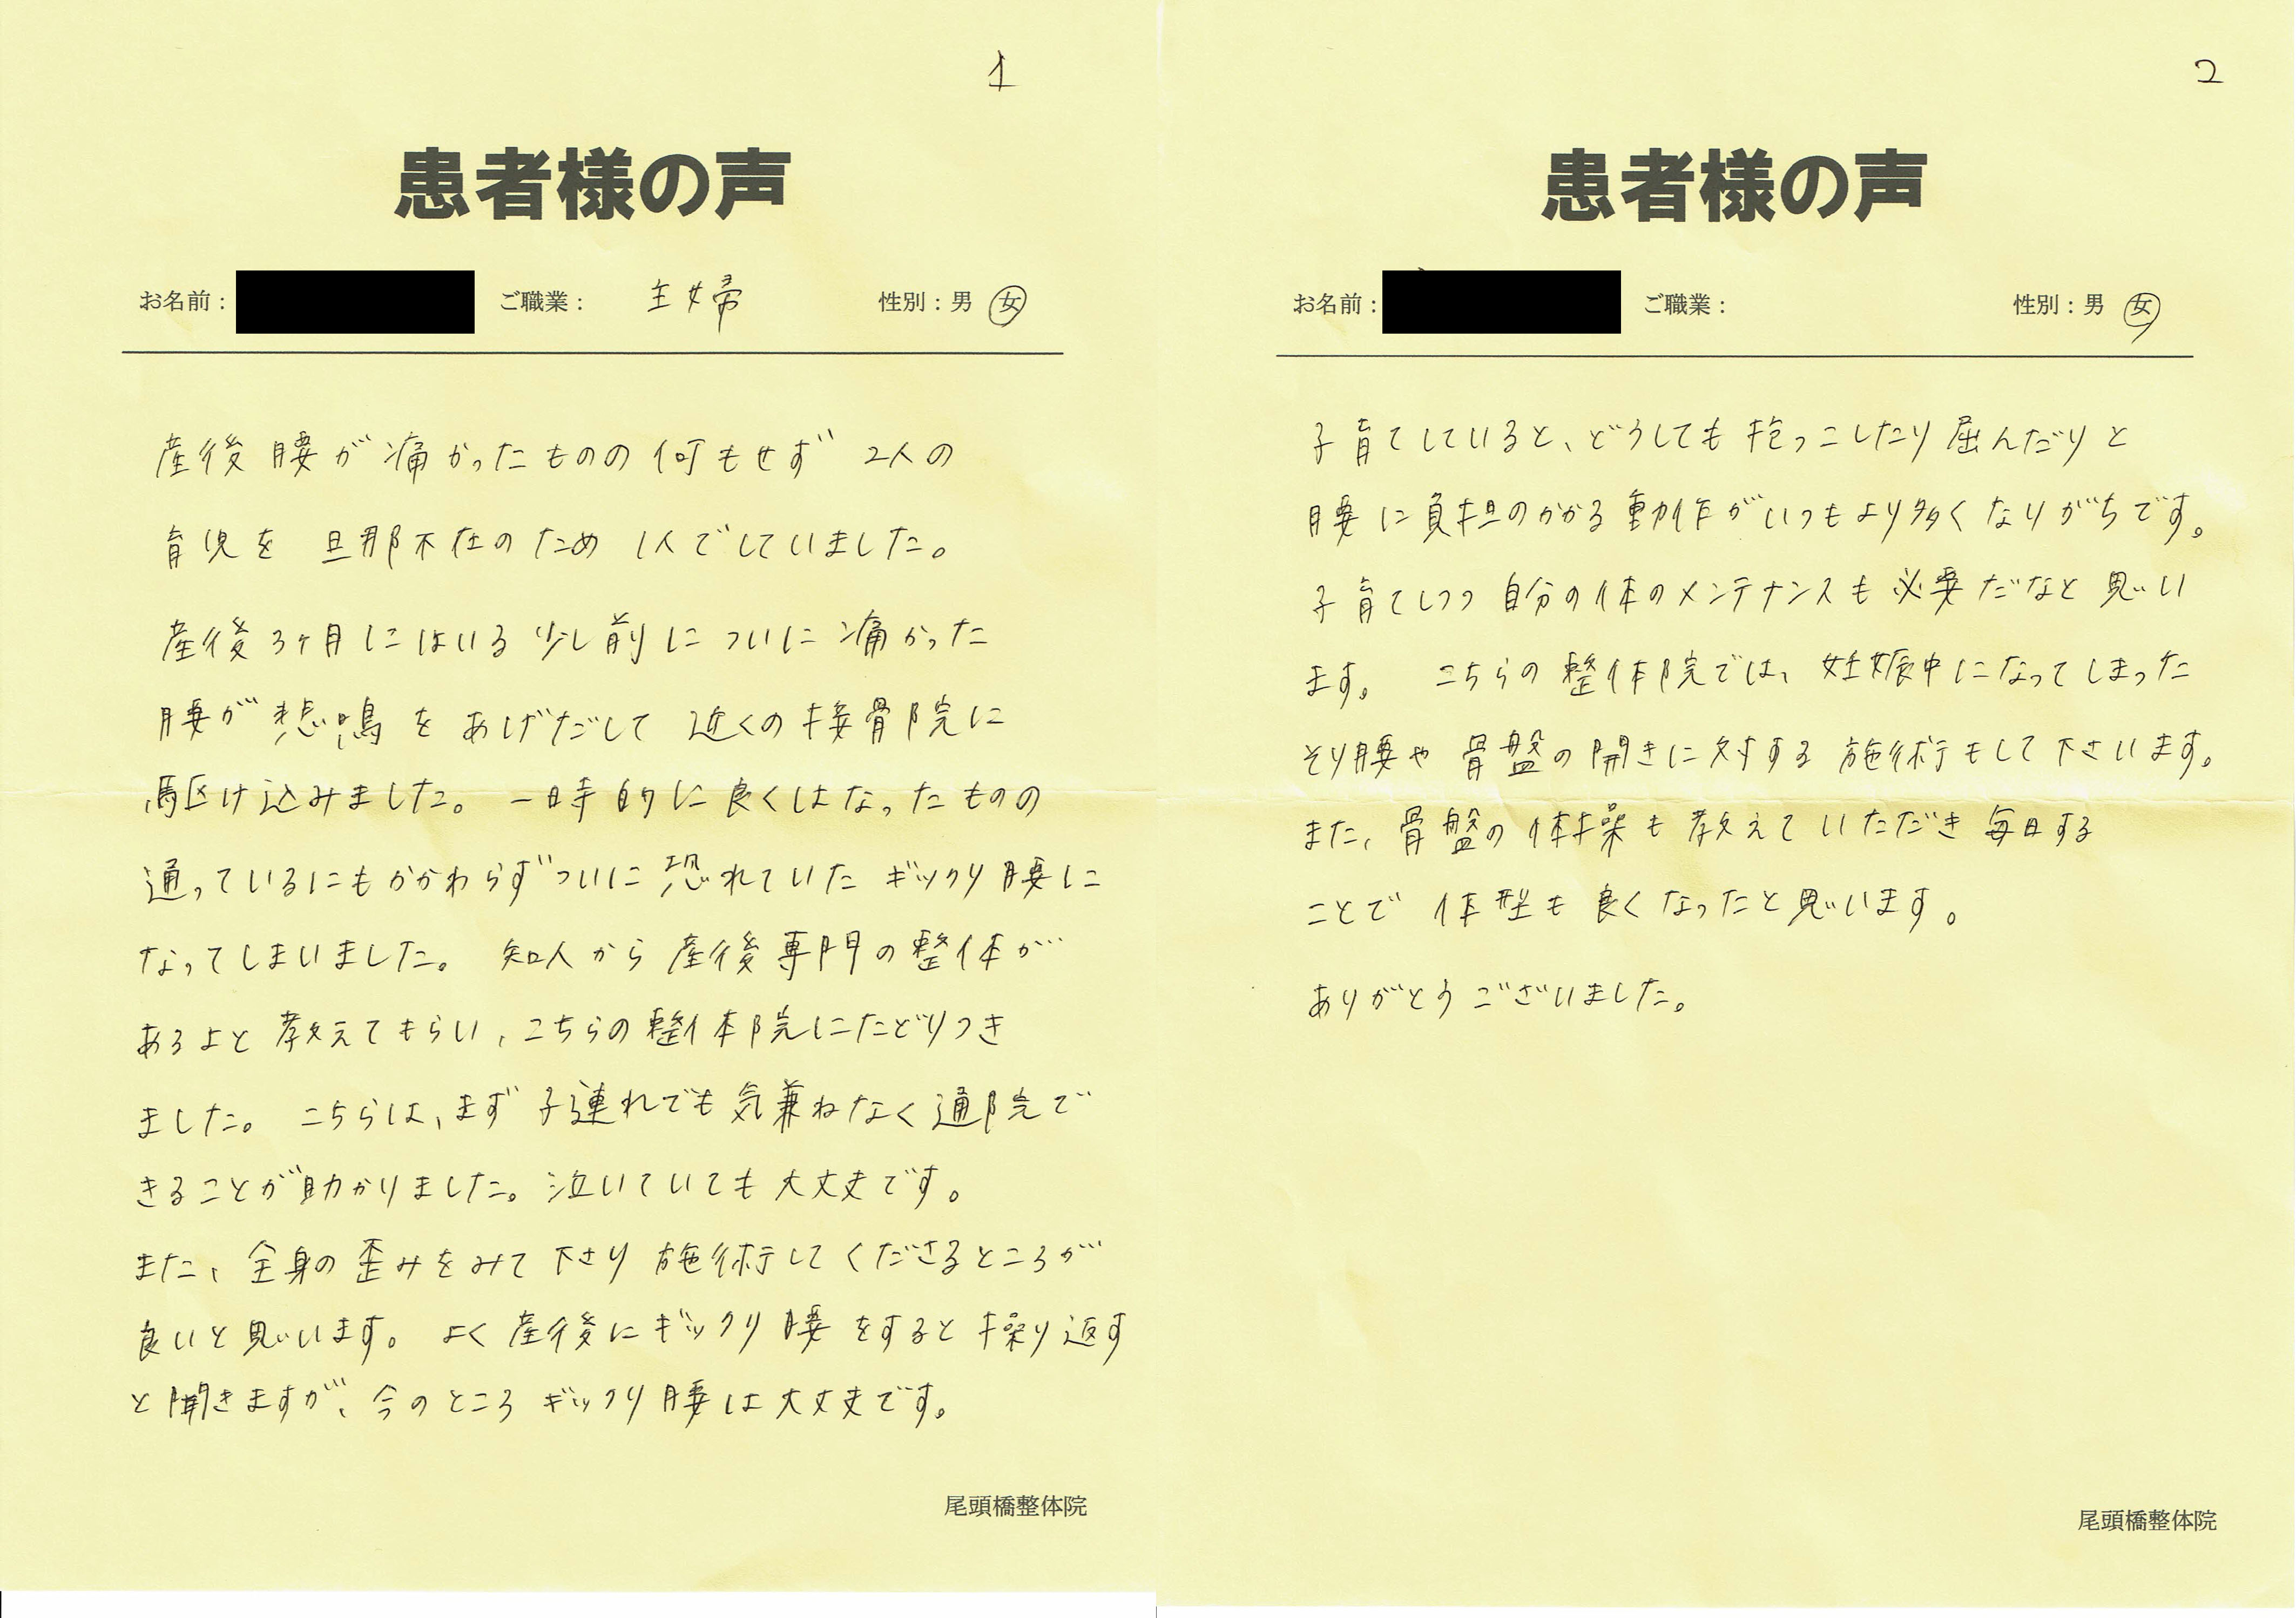 1
患者様の声
お名前： ご職業： 主婦 性別：男 女
産後腰が痛かったものの何もせず 2人の
育児を 旦那不在のため 1人でしていました。
産後3ヶ月にはいる少し前についに痛かった
腰が悲鳴をあげだして 近くの接骨院に
駆け込みました。一時的に良くはなったものの
通っているにもかかわらずついに恐れていたギックリ腰に
なってしまいました。 知人から産後専門の整体が
あるよと教えてもらい、こちらの整体院にたどりつき
ました。 こちらは、まず子連れでも気兼ねなく通院で
きることが助かりました。泣いていても大丈夫です。
また、全身の歪みをみて下さり施術してくださるところが
良いと思います。 よく産後にギックリ腰をすると繰り返す
と聞きますが、今のところギックリ腰は大丈夫です。
尾頭橋整体院
2
患者様の声
お名前： ご職業： 性別：男 女
子育てしていると、どうしても抱っこしたり屈んだりと
腰に負担のかかる動作がいつもより多くなりがちです。
子育てしつつ自分の体のメンテナンスも必要だなと思い
ます。 こちらの整体院では、妊娠中になってしまった
そり腰や骨盤の開きに対する施術もして下さいます。
また、骨盤の体操も教えていただき毎日する
ことで 体型も良くなったと思います。
ありがとうございました。
尾頭橋整体院